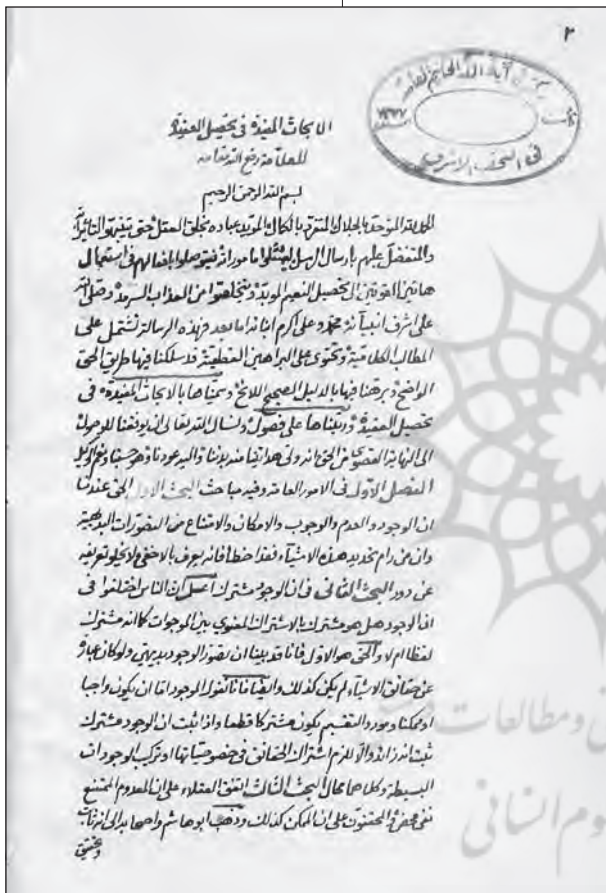 ٢
آية الله الحكيم العامة
في النجف الاشرف
الابحاث المفيدة في تحصيل العقيدة
للعلامة رفع الله مقامه
بسم الله الرحمن الرحيم
الحمد لله المتوحد بالجلال المتفرد بالكمال المؤيد عباده بخلق العقل حتى
والمتفضل عليهم بارسال الرسل ليمتثلوا اوامره فيتوصلوا بافعالهم في استعمال
هاتين القوتين الى تحصيل النعيم المؤبد من العذاب السرمد وصلى الله
على اشرف انبيائه محمد وعلى اكرم امنائه اما بعد فهذه الرسالة تشتمل على
المطالب الكلامية وتحتوى على البراهين القطعية قد سلكنا فيها طريق الحق
الواضح وبرهنا فيها بالدليل الصحيح اللائح وسمناها بالابحاث المفيدة في
تحصيل العقيدة ورتبناها على فصول ونسأل الله تعالى ان يوفقنا للوصول
الى النهاية القصوى من الحق انه ولى هدايتنا منه بدؤنا واليه عودنا وهو حسبنا ونعم الوكيل
الفصل الاول في الامور العامة وفيه مباحث البحث الاول الحق عندنا
ان الوجود والعدم والوجوب والامكان والامتناع من التصورات البديهية
وان من رام تحديد هذه الاشياء فقد اخطأ فانه يعرف بالاخفى ولا يخلو تعريفه
عن دور البحث الثاني في ان الوجود مشترك اعلم ان الناس اختلفوا في
ان الوجود هل هو مشترك بالاشتراك المعنوي بين الموجودات كما انه مشترك
لفظا ام لا والحق هو الاول فانا قد بينا ان تصور الوجود بديهي ولو كان عبارة
عن حقائق الاشياء لم يكن كذلك وايضا فانا نقول الوجود اما ان يكون واجبا
او ممكنا ومورد التقسيم يكون مشتركا قطعا واذا ثبت ان الوجود مشترك
ثبت انه زائد والا لزم اشتراك الحقائق في خصوصياتها او تركب الوجودات
البسيطة وكلاهما محال البحث الثالث اتفق العقلاء على ان المعدوم الممتنع
نفي محض والمحققون على ان الممكن كذلك وذهب ابو هاشم واصحابه الى انه ثابت
وتحقيق
ومطالعات
وم انسانی